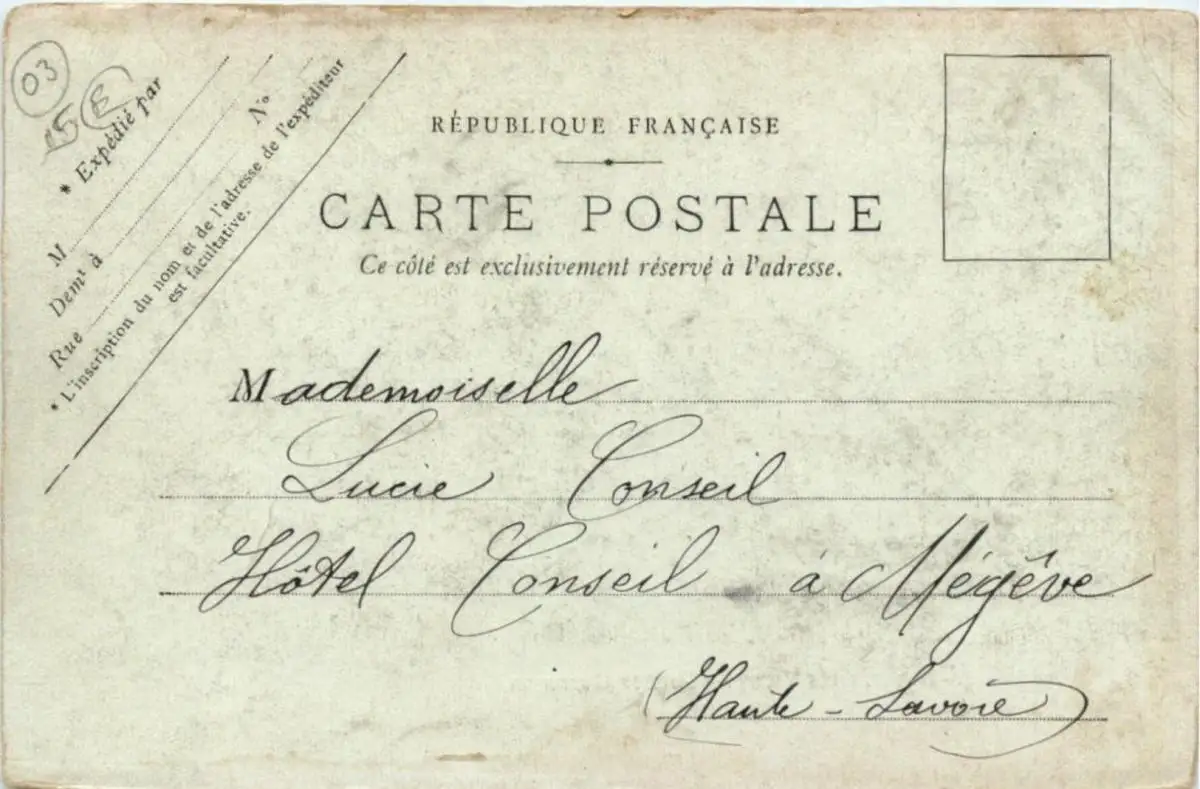 03
E
* Expédié par
M
Demt à
Rue Nº
* L'inscription du nom et de l'adresse de l'expéditeur
est facultative.
RÉPUBLIQUE FRANÇAISE
CARTE POSTALE
Ce côté est exclusivement réservé à l'adresse.
Mademoiselle
Lucie Conseil
Hôtel Conseil à Mégêve
(Haute-Savoie)